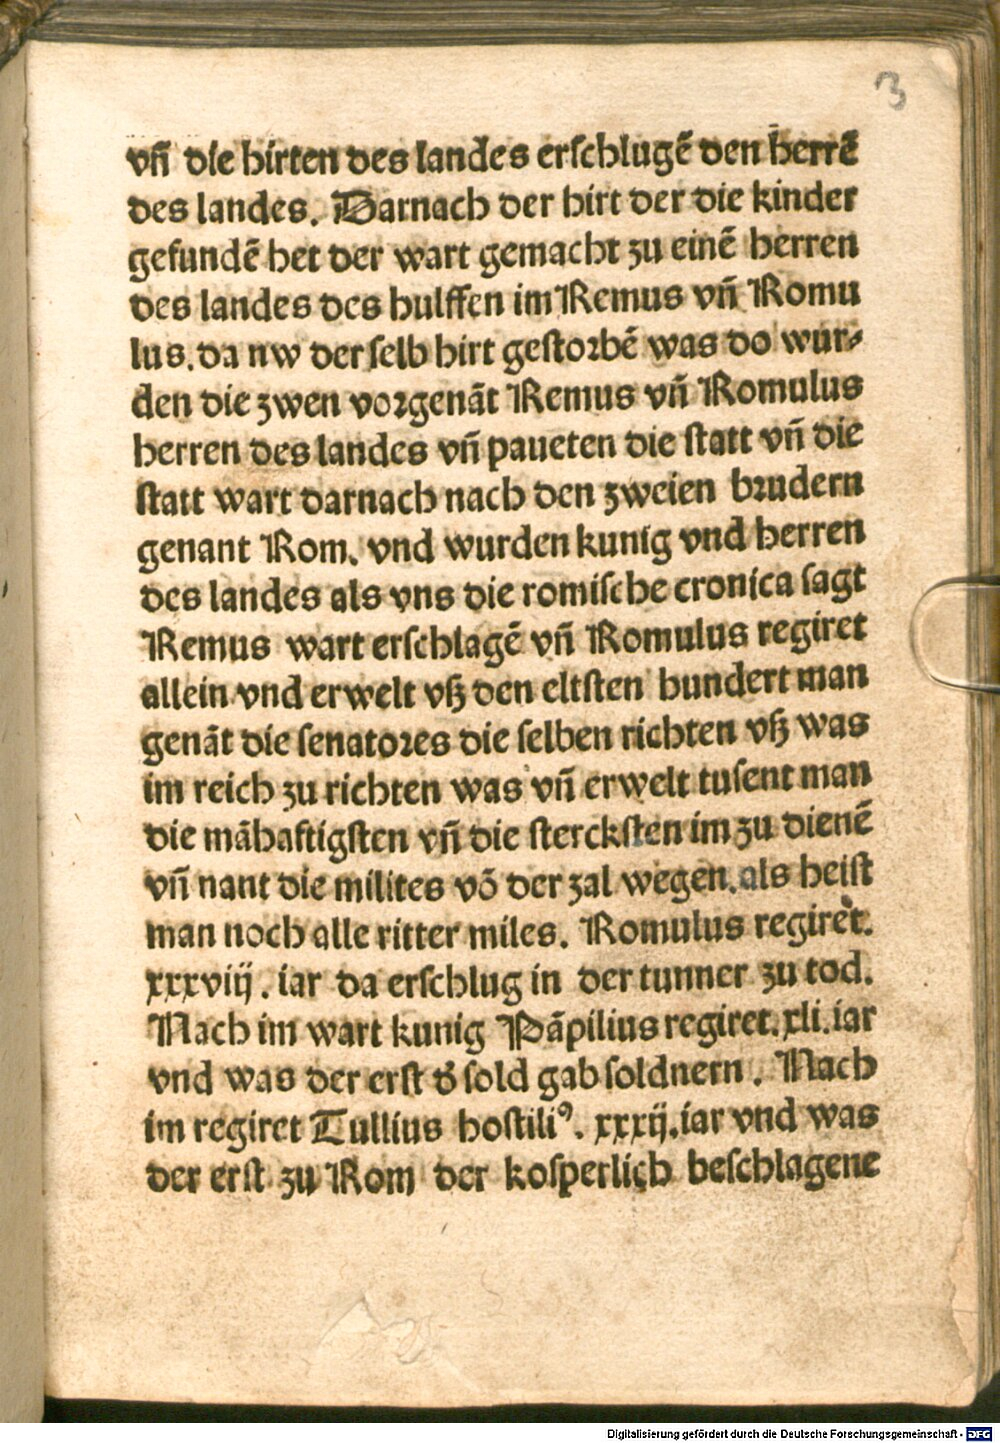 3
vñ die hirten des landes erſchlugẽ den herrẽ
des landes. Darnach der hirt der die kinder
gefundẽ het der wart gemacht zu einẽ herren
des landes des hulffen im Remus vñ Romu
lus. da nw der ſelb hirt geſtorbẽ was do wur⸗
den die zwen vorgenãt Remus vñ Romulus
herren des landes vñ paueten die ſtatt vñ die
ſtatt wart darnach nach den zweien brudern
genant Rom. vnd wurden kunig vnd herren
des landes als vns die romiſche cronica ſagt
Remus wart erſchlagẽ vñ Romulus regiret
allein vnd erwelt vß den eltſten hundert man
genãt die ſenatores die ſelben richten vß was
im reich zu richten was vñ erwelt tuſent man
die mãhaftigſten vñ die ſterckſten im zu dienẽ
vñ nant die milites võ der zal wegen. als heiſt
man noch alle ritter miles. Romulus regiret.
xxxviij. iar da erſchlug in der tunner zu tod.
Nach im wart kunig Pãpilius regiret. xli. iar
vnd was der erſt d̕ ſold gab ſoldnern. Nach
im regiret Tullius hoſtiliꝰ. xxxij. iar vnd was
der erſt zu Rom der koſperlich beſchlagene
Digitalisierung gefördert durch die Deutsche Forschungsgemeinschaft - DFG